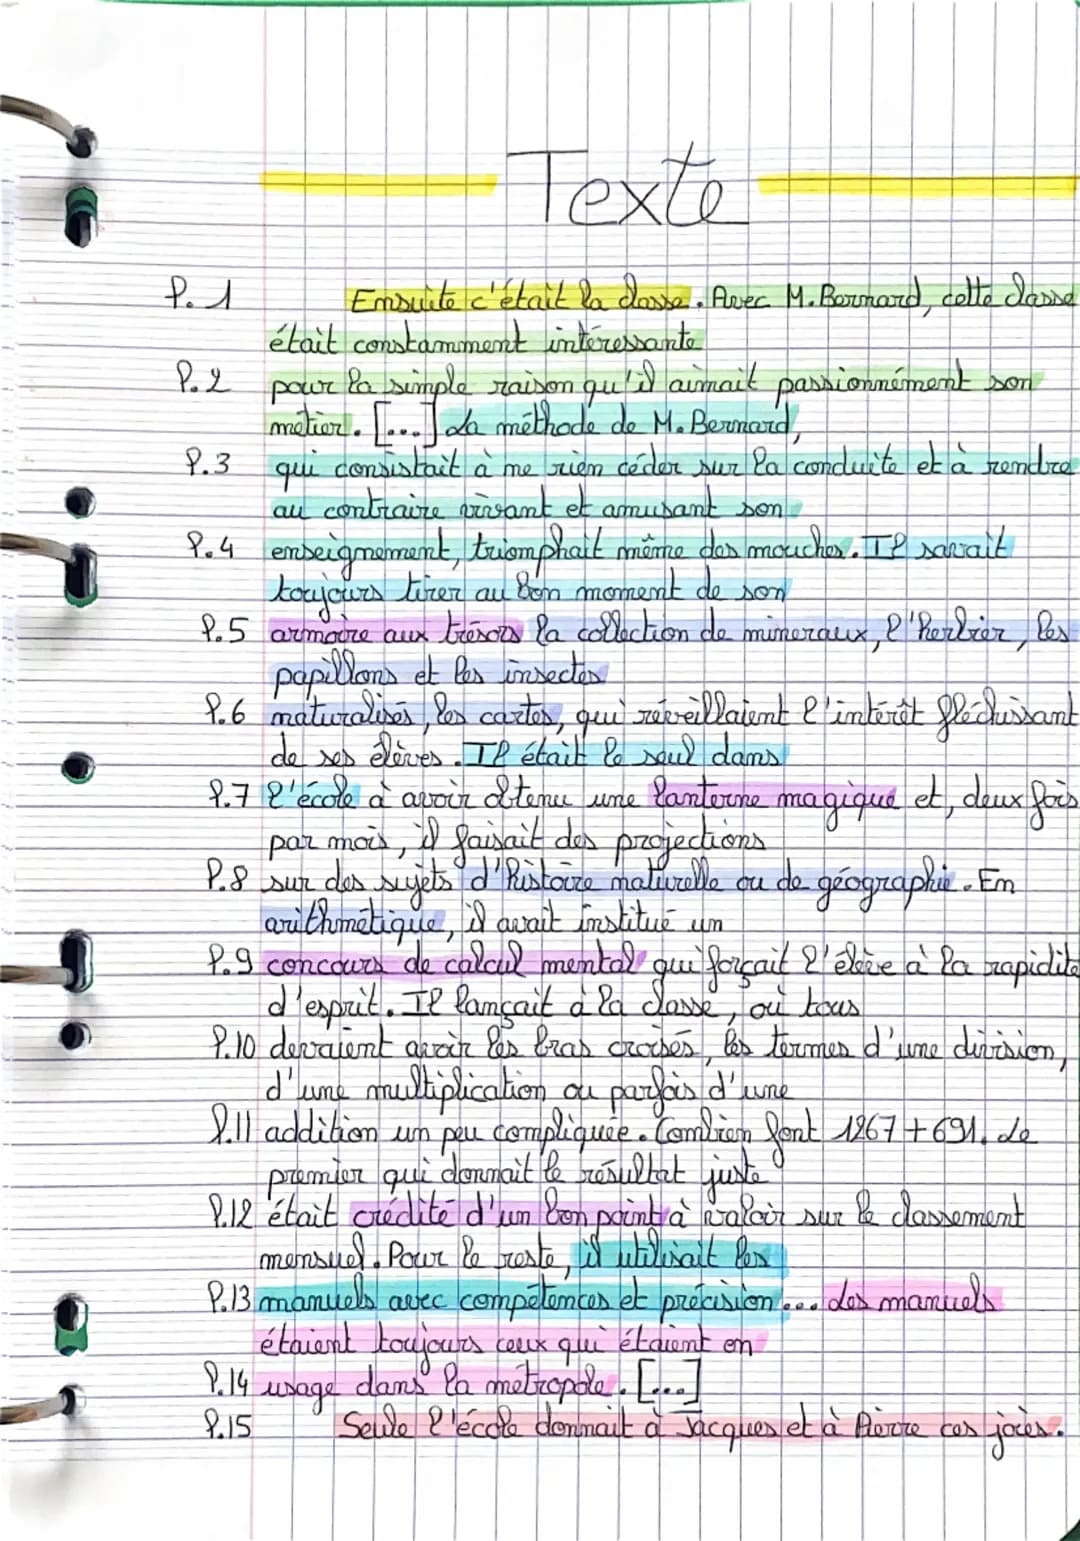 Texte
P. 1 Ensuite c'était la classe. Avec M. Bernard, cette classe
était constamment intéressante
P. 2 pour la simple raison qu'il aimait passionnément son
métier. [...] La méthode de M. Bernard,
P. 3 qui consistait à ne rien céder sur la conduite et à rendre
au contraire vivant et amusant son
P. 4 enseignement, triomphait même des mouches. Il savait
toujours tirer au bon moment de son
P. 5 armoire aux trésors la collection de mineraux, l'herbier, les
papillons et les insectes
P. 6 naturalisés, les cartes, qui réveillaient l'intérêt fléchissant
de ses élèves. Il était le seul dans
P. 7 l'école à avoir obtenu une lanterne magique et, deux fois
par mois, il faisait des projections
P. 8 sur des sujets d'histoire naturelle ou de géographie. En
arithmétique, il avait institué un
P. 9 concours de calcul mental qui forçait l'élève à la rapidité
d'esprit. Il lançait à la classe, où tous
P. 10 devaient avoir les bras croisés, les termes d'une division,
d'une multiplication ou parfois d'une
P. 11 addition un peu compliquée. Combien font 1267 + 691. Le
premier qui donnait le résultat juste
P. 12 était crédité d'un bon point à valoir sur le classement
mensuel. Pour le reste, il utilisait les
P. 13 manuels avec compétences et précision... des manuels
étaient toujours ceux qui étaient en
P. 14 usage dans la métropole. [...]
P. 15 Seule l'école donnait à Jacques et à Pierre ces joies.